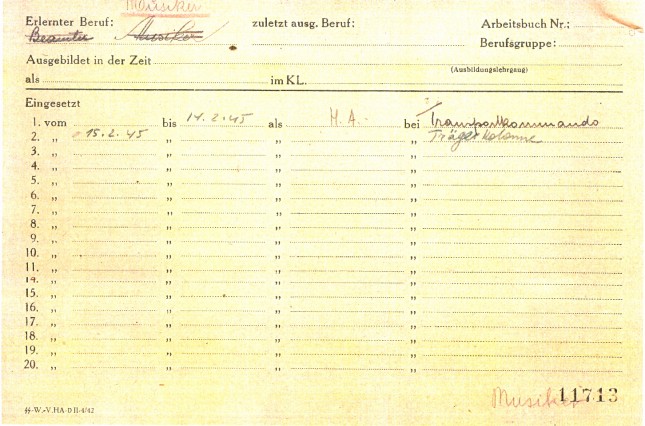 Musiker
Erlernter Beruf: zuletzt ausg. Beruf: Arbeitsbuch Nr.:
Beamter Musiker Berufsgruppe:
Ausgebildet in der Zeit
(Ausbildungslehrgang)
als im KL.
Eingesetzt
1. vom bis 14.2.45 als H.A. bei Transportkommando
2. „ 15.2.45 „ „ „ Trägerkolonne
3. „ „ „ „
4. „ „ „ „
5. „ „ „ „
6. „ „ „ „
7. „ „ „ „
8. „ „ „ „
9. „ „ „ „
10. „ „ „ „
11. „ „ „ „
14. „ „ „ „
15. „ „ „ „
16. „ „ „ „
17. „ „ „ „
18. „ „ „ „
19. „ „ „ „
20. „ „ „ „
Musiker 11713
ᛋᛋ-W.-V.HA-D II-4/42